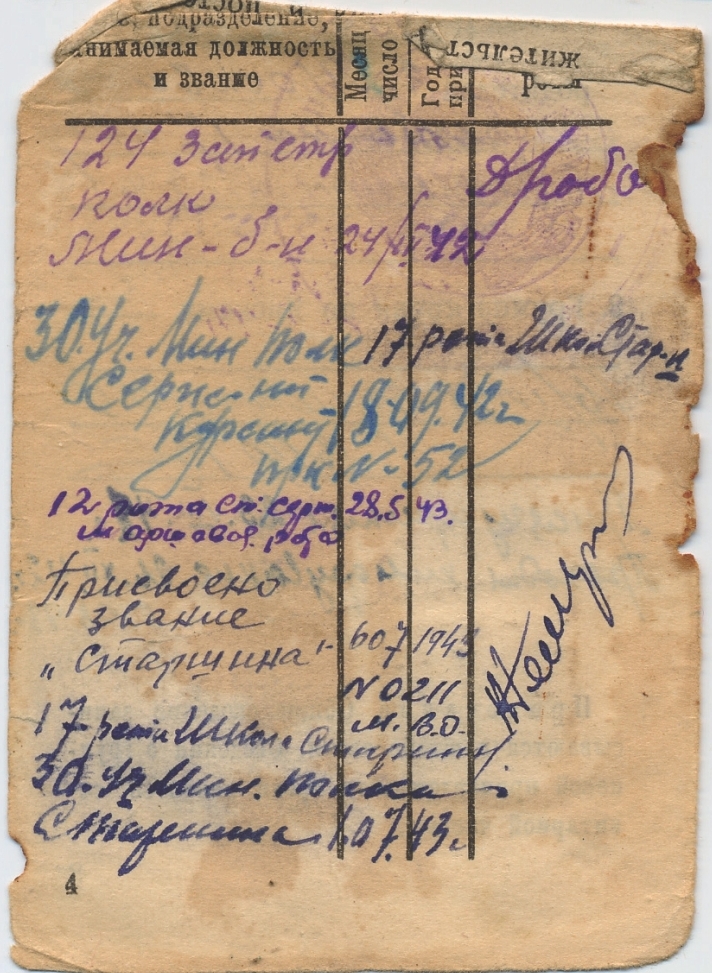 подразделение,
занимаемая должность
и звание
Месяц
число
Год
жительст
124 Зап стр
полк
Мин-б-н 24/ 42
Дробо
30. Уч. Мин полк 17 рота Школ Стар-н
Сержант
Курсант 18.09.42 г
№ 52
12 рота ст. серж. 28.5 43.
Маршевая рота
Присвоено
звание
"Старшина" 607 1943
N 0211
М. В.О.
17 рота Школа Старшин
30. Уч Мин. полка
Старшина 1.07.43 г
4